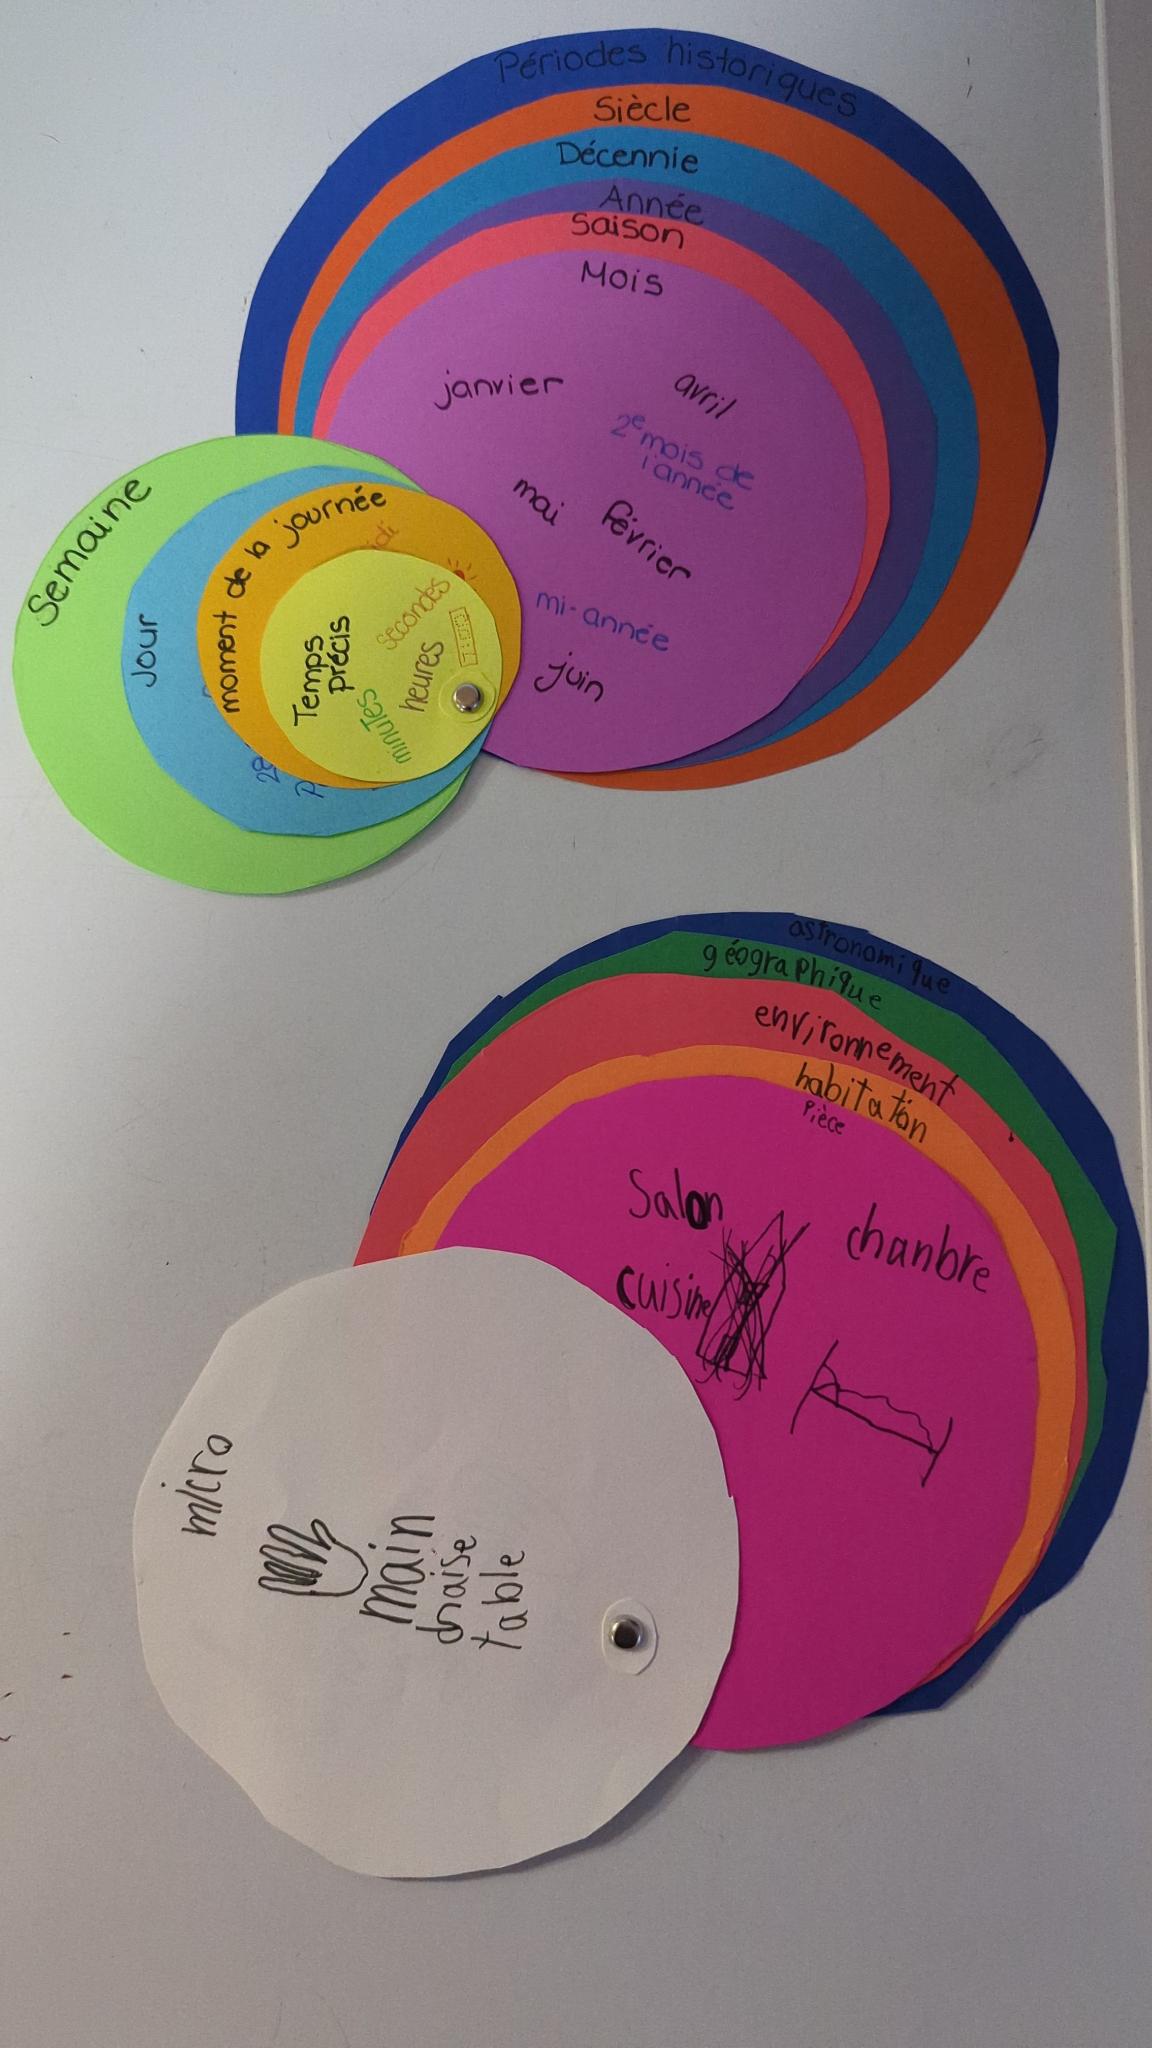 Périodes historiques
Siècle
Décennie
Année
Saison
Mois
janvier
avril
2e mois de
l'année
mai
février
mi-année
juin
Semaine
Jour
moment de la journée
Temps
précis
secondes
heures
minutes
astronomique
géographique
environnement
habitation
Pièce
Salon
chanbre
cuisine
micro
main
chaise
table